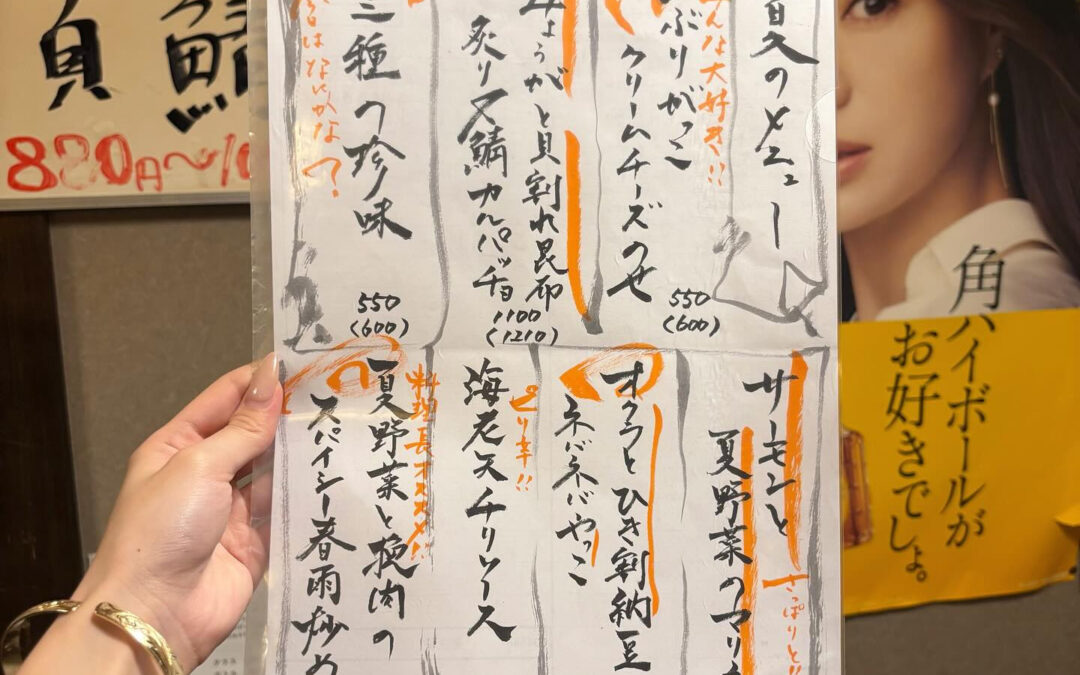 夏のメニュー
みんな大好き!!
いぶりがこ
クリームチーズのせ
550
(600)
みょうがと貝割れ昆布
炙り〆鯖カルパッチョ
1100
(1210)
三種の珍味
今日はなにかな?
550
(600)
サーモンと
夏野菜のマリ
さっぱりと!!
オクラとひき割納豆
ネバネバやっこ
海老天チリソース
ピリ辛!!
料理長オススメ!!
夏野菜と挽肉の
スパイシー春雨炒め
貝
鯖
880円~10
角ハイボールが
お好きでしょ。